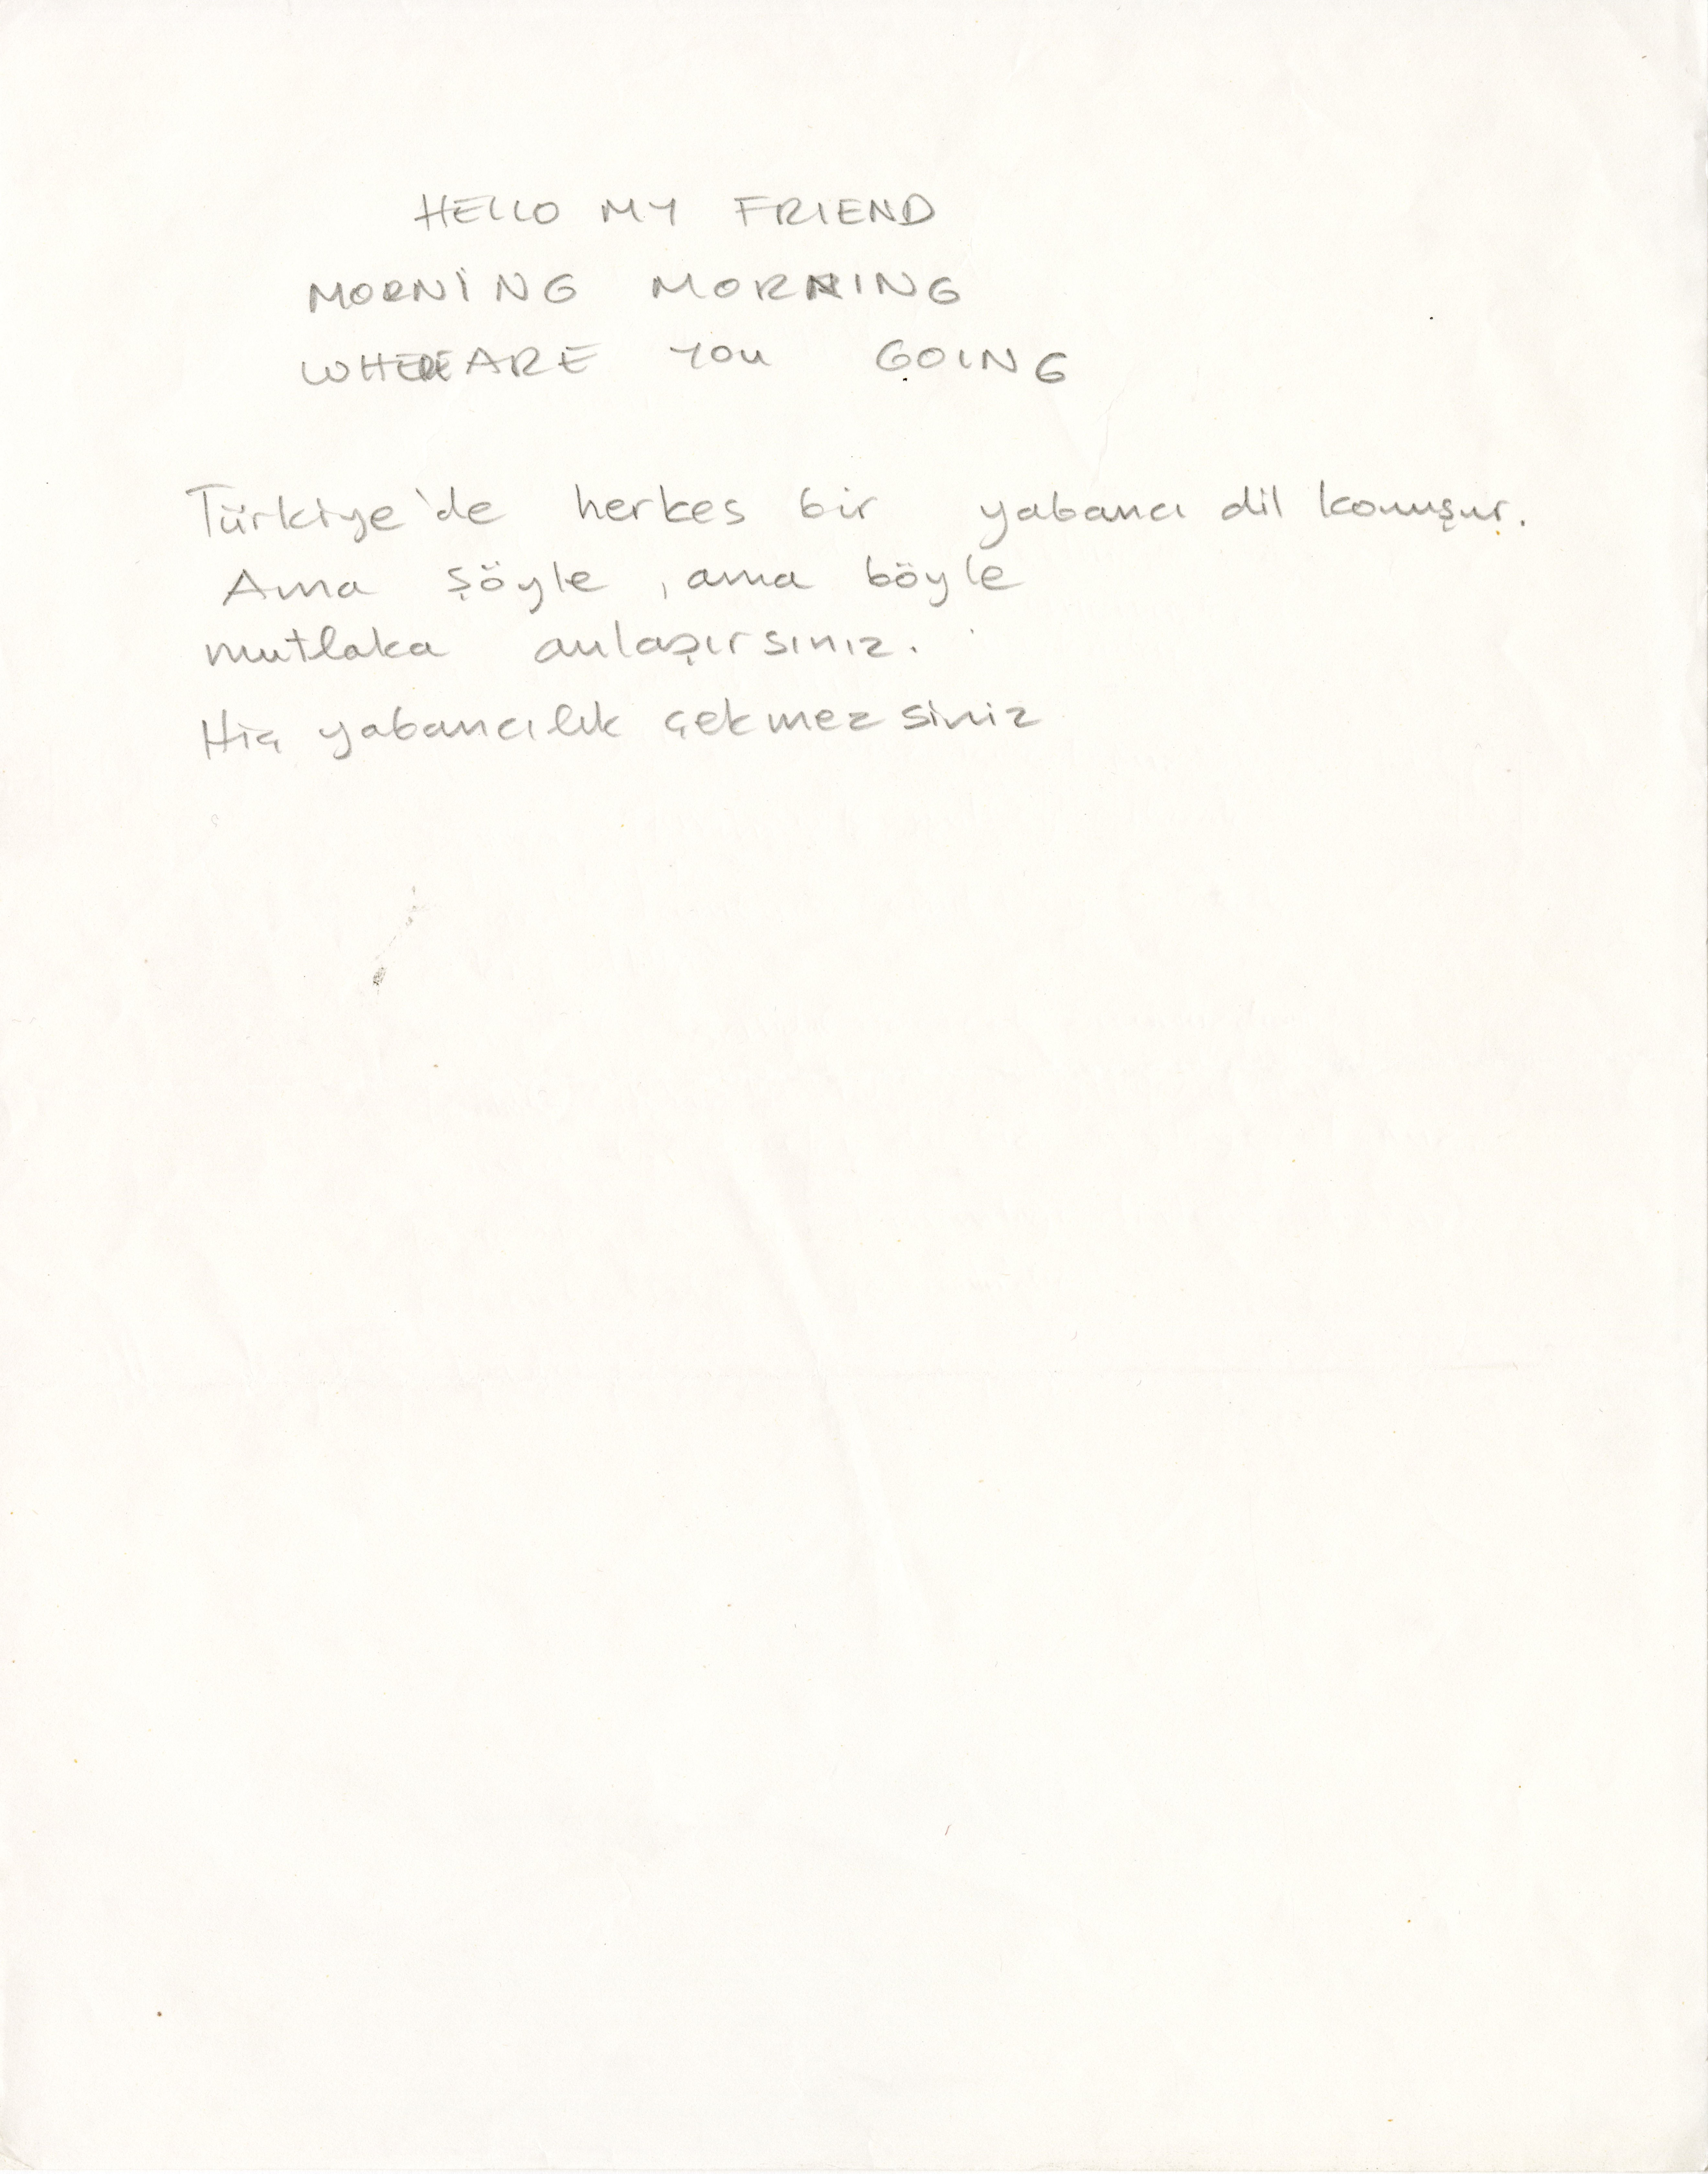 HELLO MY FRIEND
MORNİNG MORNING
WHERE ARE YOU GOING
Türkiye'de herkes bir yabancı dil konuşur.
Ama şöyle, ama böyle
mutlaka anlaşırsınız.
Hiç yabancılık çekmezsiniz